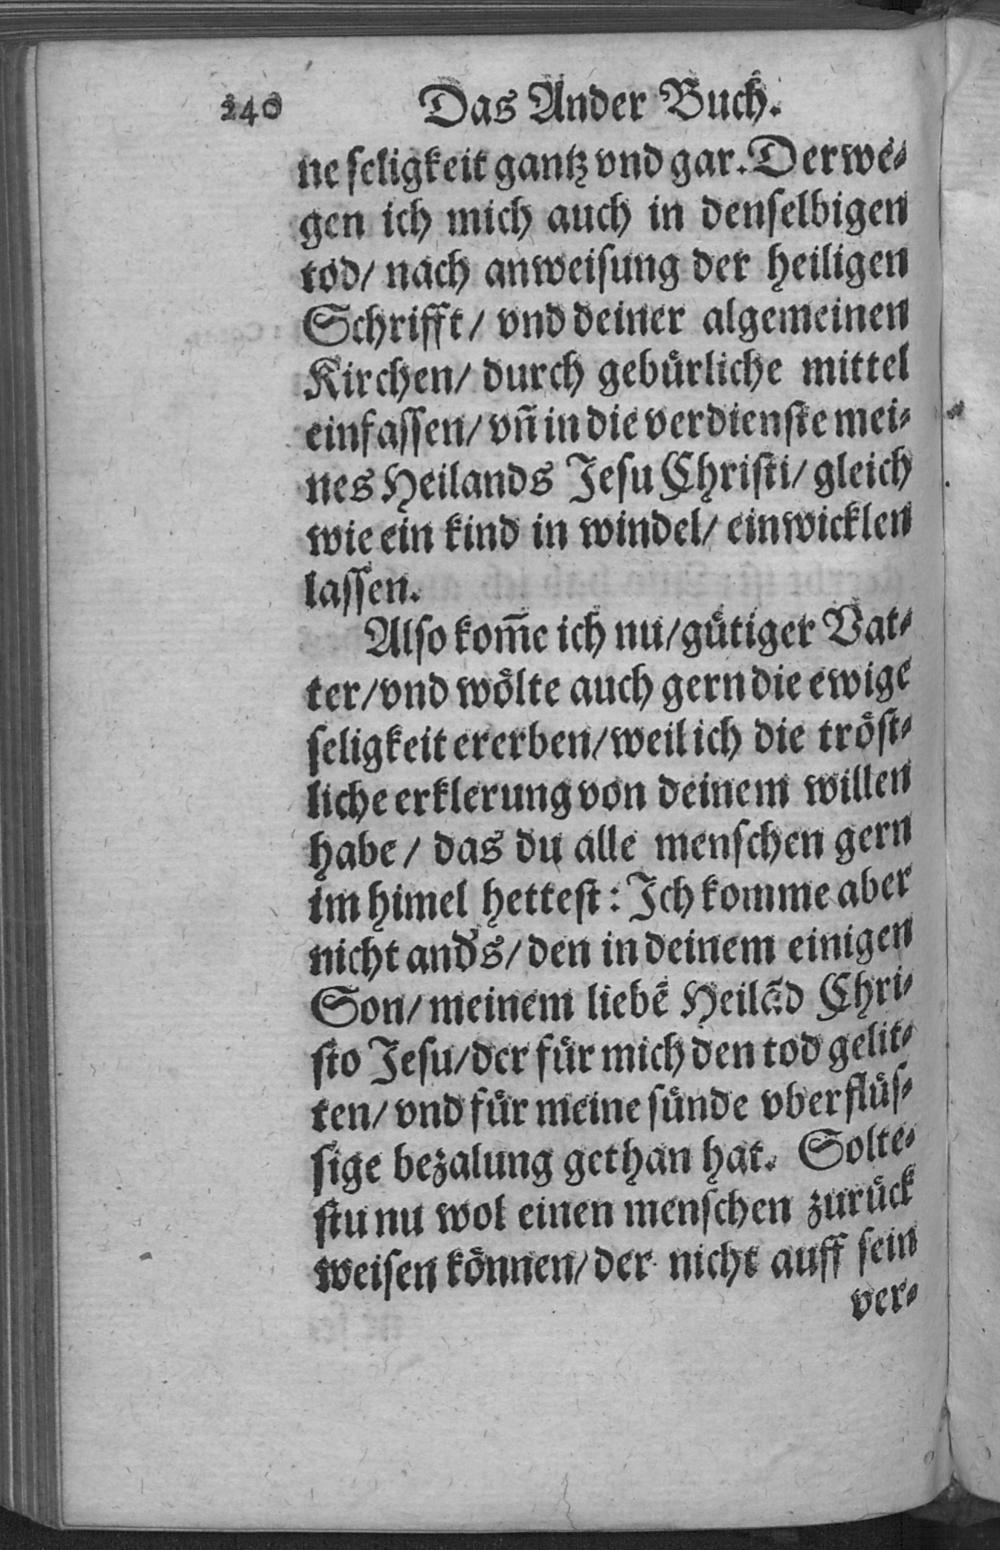 240 Das Ander Buch.
ne seligkeit gantz vnd gar. Derwe⸗
gen ich mich auch in denselbigen
tod/ nach anweisung der heiligen
Schrifft/ vnd deiner algemeinen
Kirchen/ durch gebuͤrliche mittel
einfassen/ vñ in die verdienste mei⸗
nes Heilands Jesu Christi/ gleich
wie ein kind in windel/ einwicklen
lassen.
Also kom̃e ich nu/ guͤtiger Vat⸗
ter/ vnd woͤlte auch gern die ewige
seligkeit ererben/ weil ich die troͤst⸗
liche erklerung von deinem willen
habe/ das du alle menschen gern
im himel hettest: Ich komme aber
nicht and's/ den in deinem einigen
Son/ meinem liebẽ Heilãd Chri⸗
sto Jesu/ der fuͤr mich den tod gelit⸗
ten/ vnd fuͤr meine suͤnde vberfluͤs⸗
sige bezalung gethan hat. Solte⸗
stu nu wol einen menschen zuruͤck
weisen koͤnnen/ der nicht auff sein
ver⸗